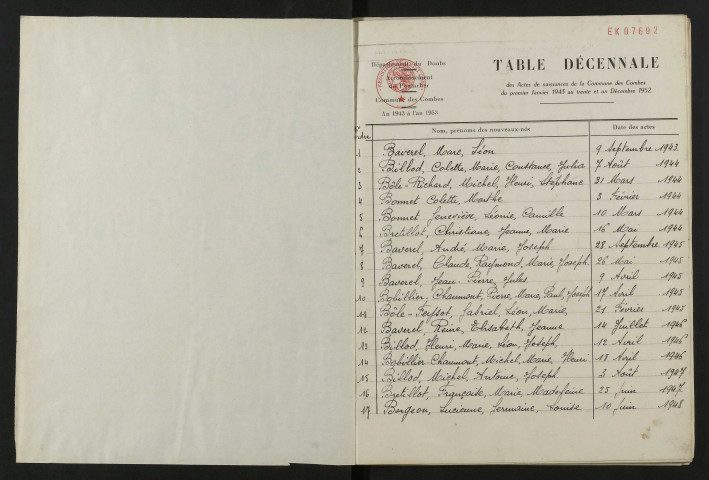 EK07692
Département du Doubs
Arrondissement
de Pontarlier
Commune des Combes
An 1943 à l'an 1953
TABLE DÉCENNALE
des Actes de naissances de la Commune des Combes
du premier Janvier 1943 au trente et un Décembre 1952.
Nom, prénoms des nouveaux-nés Date des actes
1 Baverel, Marc, Léon 9 Septembre 1943.
2 Billod, Colette, Marie, Constance, Julia 7 Août 1944
3 Bôle-Richard, Michel, Henri, Stéphane 31 Mars 1944
4 Bonnet Colette, Marthe 3 Février 1944
5 Bonnet Geneviève, Léonie, Camille 10 Mars 1944
6 Bretillot, Christiane, Jeanne, Marie 16 Mai 1944
7 Baverel, André, Marie, Joseph 28 Septembre 1945
8 Baverel, Claude, Raymond, Marie, Joseph 26 Mai 1945
9 Baverel, Jean-Pierre, Jules 9 Avril 1945
10 Bobillier-Chaumont, Pierre, Marie, Paul, Joseph 17 Avril 1945
11 Bôle-Feysot, Gabriel, Léon, Marie, 21 Février 1945
12 Baverel, Reine, Elisabeth, Jeanne 14 Juillet 1946
13 Billod, Henri, Marie, Léon, Joseph, 12 Avril 1946
14 Bobillier-Chaumont, Michel, Marie, Henri 18 Avril 1946
15 Billod, Michel, Antoine, Joseph 3 Août 1947
16 Bretillot, Françoise, Marie, Madeleine 25 Juin 1947.
17 Bergeon, Lucienne, Germaine, Louise 10 Juin 1948